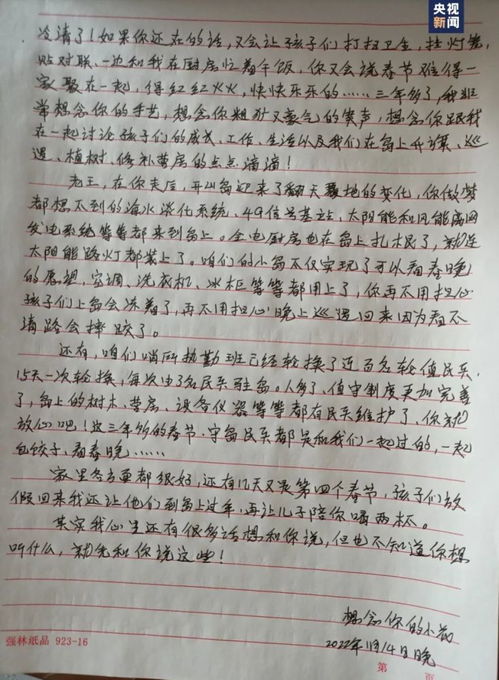 央视新闻
冷清了！如果你还在的话，又会让孩子们打扫卫生，挂灯笼，
贴对联、一边和我在厨房忙着年饭，你又会说春节难得一
家聚在一起，得红红火火，快快乐乐的……三年多了，我非
常想念你的手艺，想念你粗犷又豪气的笑声，想念你跟我
在一起讨论孩子们的成长、工作、生活以及我们在岛上升旗、巡
逻、植树、修补营房的点点滴滴！
老王，在你走后，开山岛迎来了翻天覆地的变化，你做梦
都想不到的海水淡化系统、4G信号基站，太阳能和风能离网
发电系统等等都来到岛上。全电厨房也在岛上扎根了，就连
太阳能路灯都装上了。咱们的小岛不仅实现了可以看春晚
的愿望，空调、洗衣机、冰柜等等都用上了，你再不用担心
孩子们上岛会冻着了，再不用担心晚上巡逻回来因为看不
清路会摔跤了。
还有，咱们哨所执勤班已经轮换了近百名轮值民兵，
15天一次轮换，每次由3名民兵驻岛。人多了，值守制度更加完善
了，岛上的树木、营房、设备仪器等等都有民兵维护了，你就
放心吧！这三年多的春节，守岛民兵都是和我们一起过的，一起
包饺子、看春晚……
家里各方面都很好，还有几天又是第四个春节，孩子们放
假回来我还让他们到岛上过年，再让儿子陪你喝两杯。
其实我心里还有很多话想和你说，但也不知道你想
听什么，就先和你说这些！
想念你的小
2022年1月14日晚
强林纸品 923-16
第 页